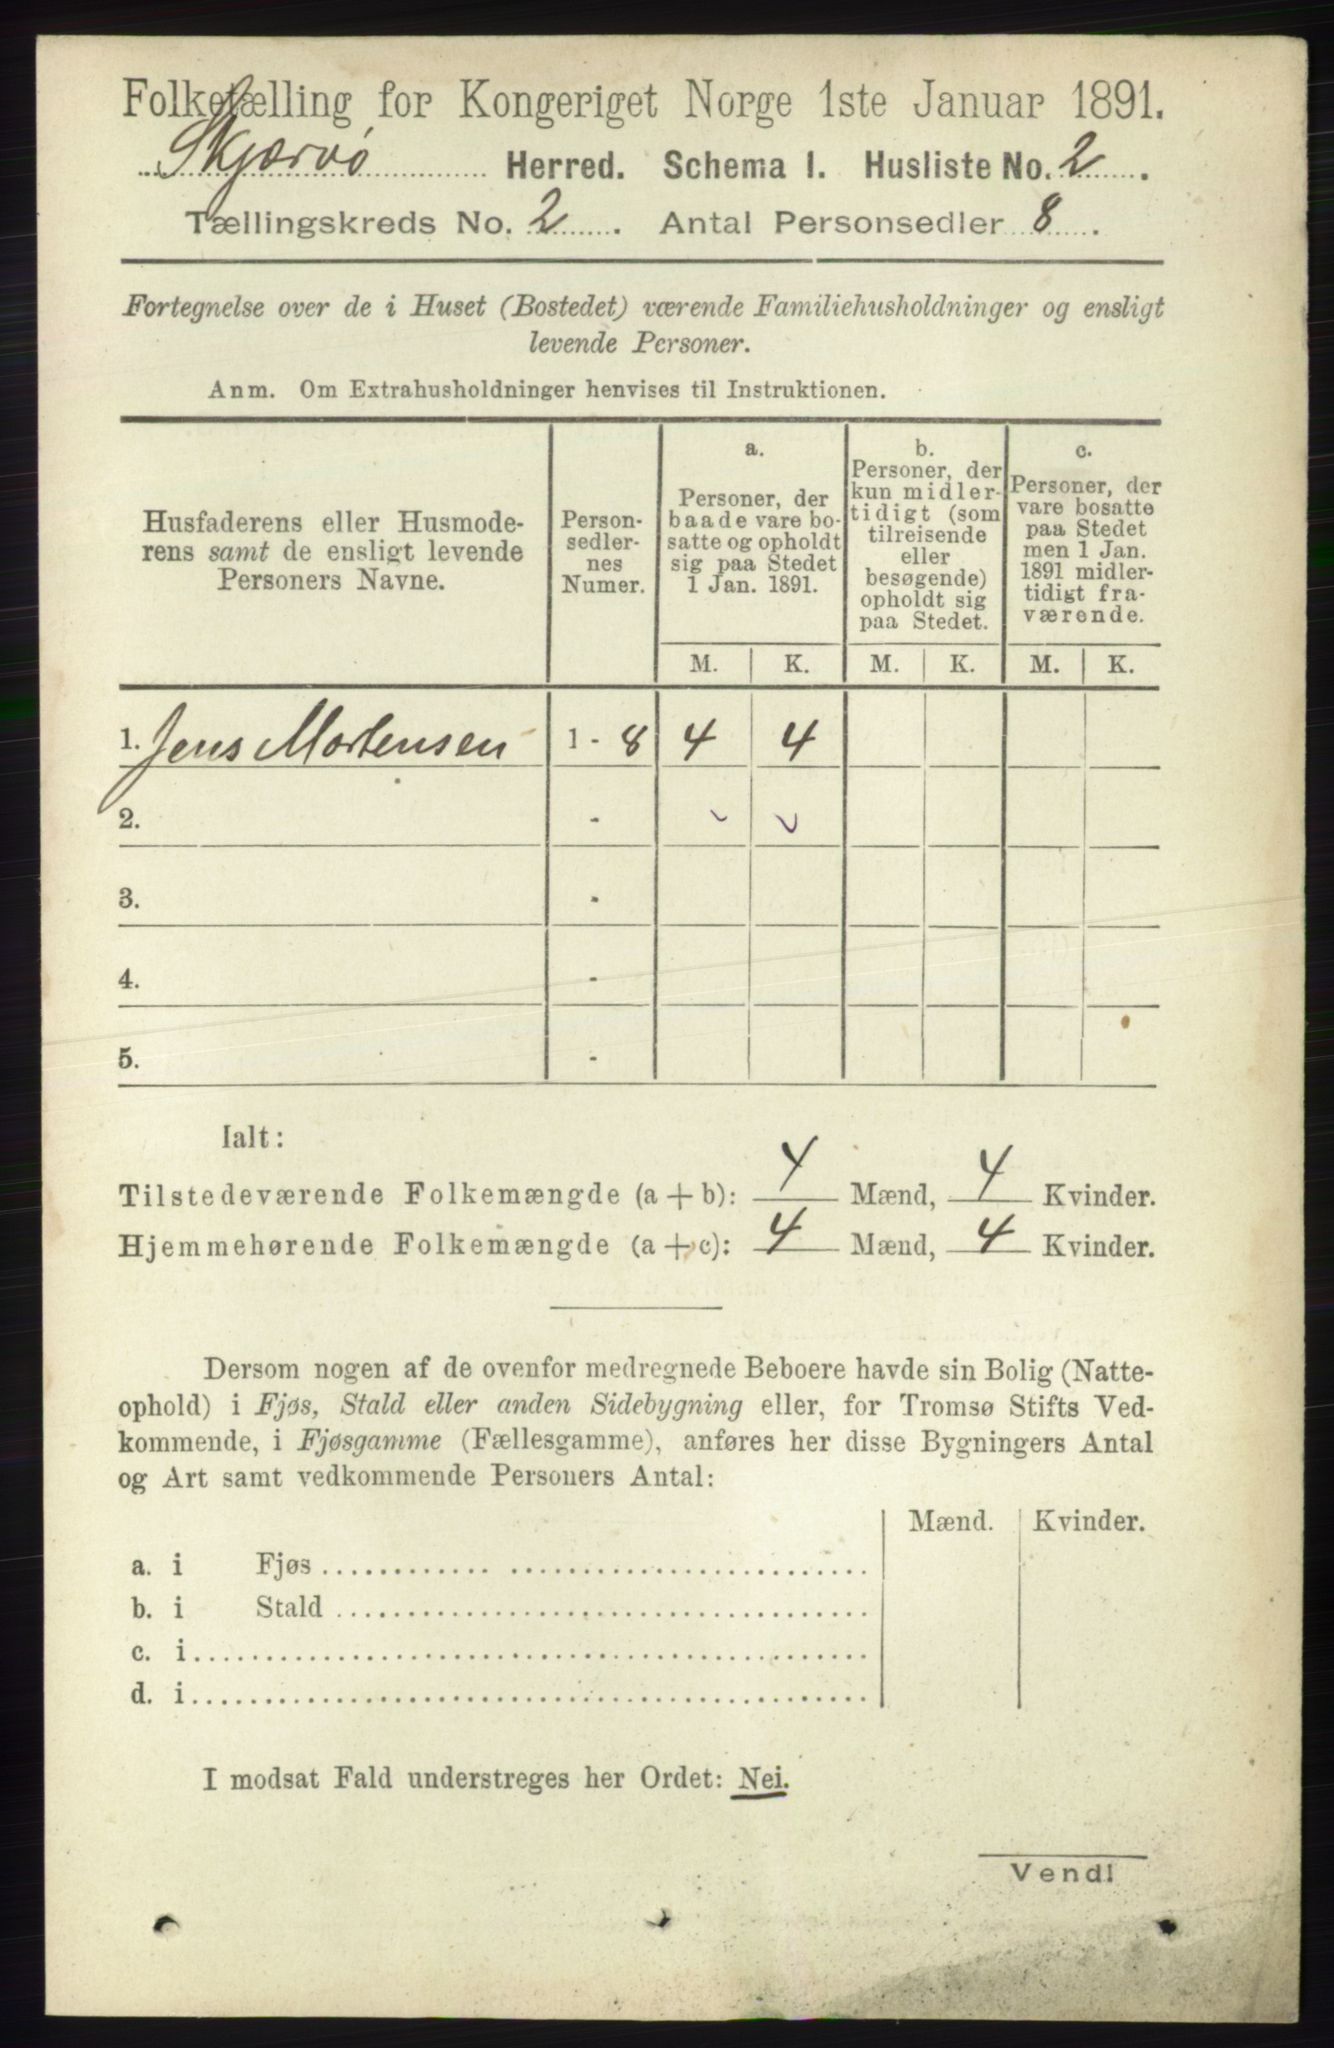 Folketælling for Kongeriget Norge 1ste Januar 1891.
Skjærvø Herred. Schema I. Husliste No. 2.
Tællingskreds No. 2. Antal Personsedler 8.
Fortegnelse over de i Huset (Bostedet) værende Familiehusholdninger og ensligt
levende Personer.
Anm. Om Extrahusholdninger henvises til Instruktionen.
Husfaderens eller Husmode-
rens samt de ensligt levende
Personers Navne.
Person-
sedler-
nes
Numer.
a.
Personer, der
baade vare bo-
satte og opholdt
sig paa Stedet
1 Jan. 1891.
b.
Personer, der
kun midler-
tidigt (som
tilreisende
eller
besøgende)
opholdt sig
paa Stedet.
c.
Personer, der
vare bosatte
paa Stedet
men 1 Jan.
1891 midler-
tidigt fra-
værende.
M. K. M. K. M. K.
1. Jens Mortensen 1 - 8 4 4
2. -
3. -
4. -
5. -
Ialt:
Tilstedeværende Folkemængde (a + b): 4 Mænd, 4 Kvinder.
Hjemmehørende Folkemængde (a + c): 4 Mænd, 4 Kvinder.
Dersom nogen af de ovenfor medregnede Beboere havde sin Bolig (Natte-
ophold) i Fjøs, Stald eller anden Sidebygning eller, for Tromsø Stifts Ved-
kommende, i Fjøsgamme (Fællesgamme), anføres her disse Bygningers Antal
og Art samt vedkommende Personers Antal:
Mænd. Kvinder.
a. i Fjøs
b. i Stald
c. i
d. i
I modsat Fald understreges her Ordet: Nei.
Vend!